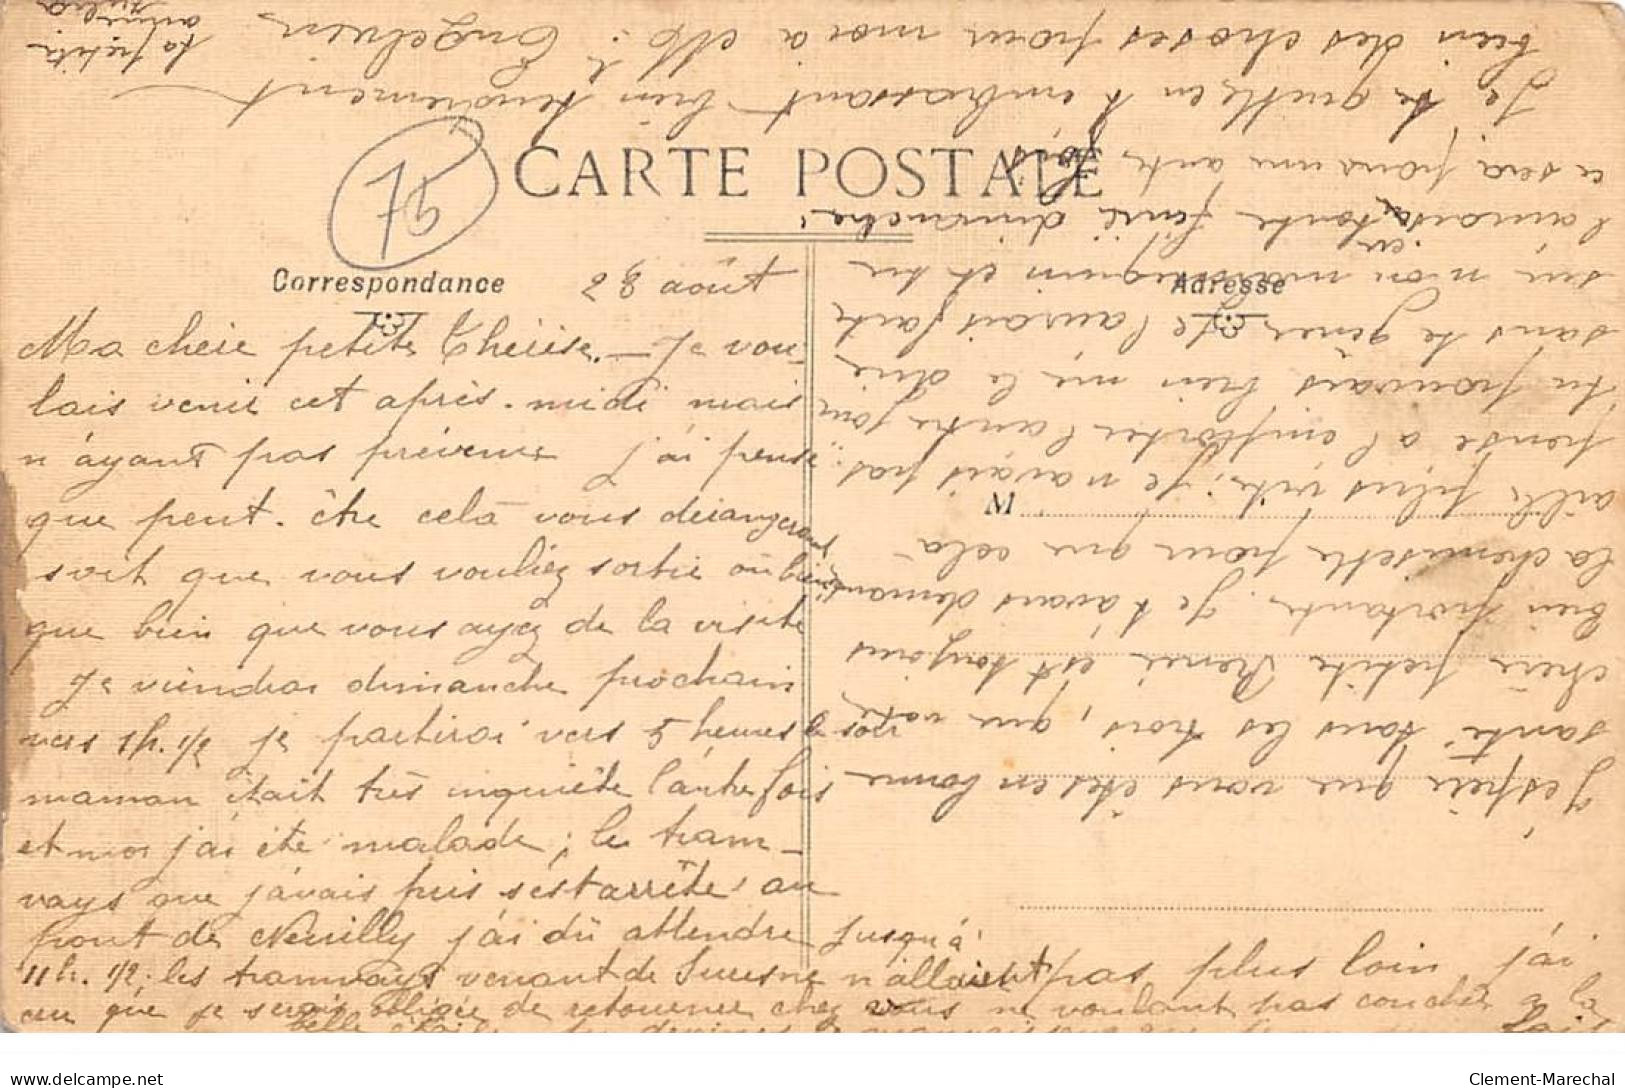 CARTE POSTALE
75
Correspondance
Adresse
M
28 août
Ma chère petite Thérèse. — Je vou-
lais venir cet après-midi mais
n'ayant pas prévenue j'ai pensé
que peut-être celà vous dérangerait
soit que vous vouliez sortir où bien
que bien que vous ayez de la visite
Je viendrai dimanche prochain
vers 1h. 1/2 je partirai vers 5 heures le soir
maman était très inquiète l'autre fois
et moi j'ai été malade ; le tram-
ways que j'avais pris s'est arrêté au
pont de Neuilly j'ai dû attendre jusqu'à
11h. 1/2 ; les tramways venant de Suresne n'allaient pas plus loin j'ai
cru que je serais obligée de retourner chez vous ne voulant pas coucher à la
belle étoile
J'espère que vous êtes en bonne
santé tous les trois, que votre
chère petite Renée est toujours
bien portante. Je t'avais demandé
la chemisette pour que cela
aille plus vite ; je n'avais pas
pensé à l'emporter l'autre jour
tu pouvais bien me le dire
sans te gêner je l'aurais faite
sur mon mannequin et tu
l'aurais en toute finie dimanche !
ce sera pour une autre fois
Je te quitte en t'embrassant bien tendrement
bien des choses pour moi à Mr. Engelven
ta petite
amie